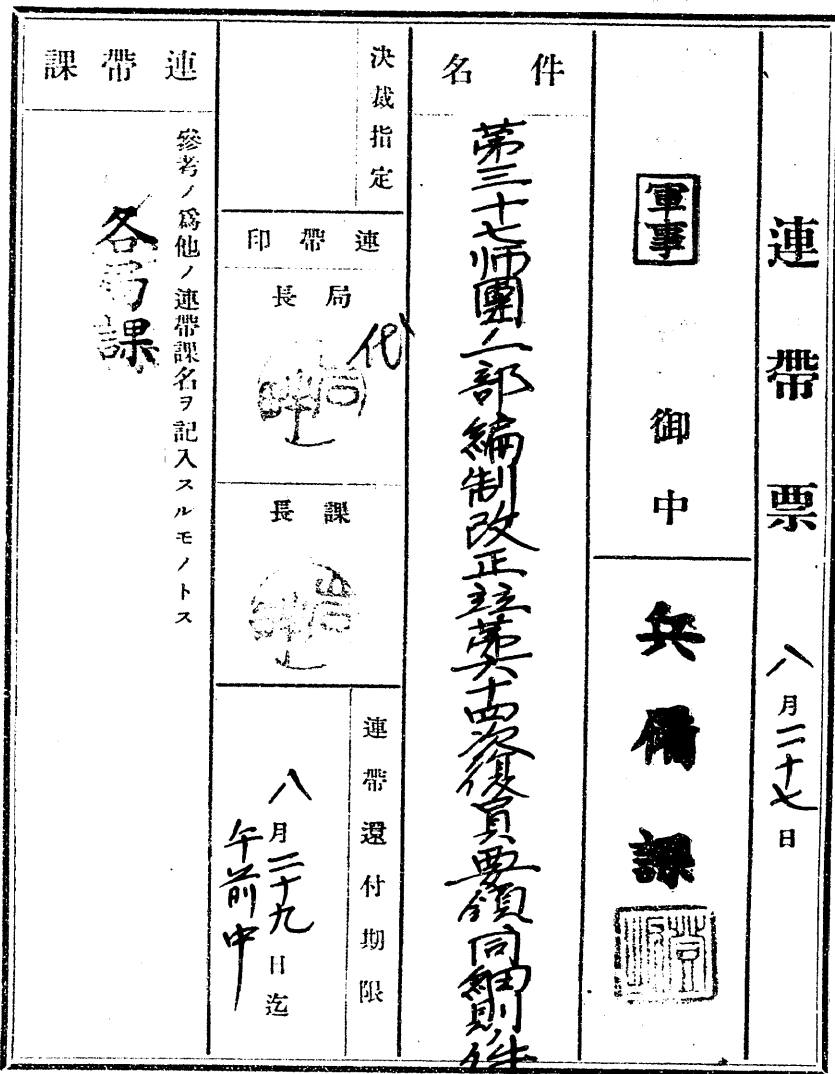 連帶票 八月二十七日
軍事 御中
兵備課
件名
第三十七師團一部編制改正竝第六十四次復員要領同細則ノ件
決裁指定
連帶印
局長
代
課長
連帶還付期限
八月二十九日迄
午前中
連帶課
參考ノ爲他ノ連帶課名ヲ記入スルモノトス
各局課